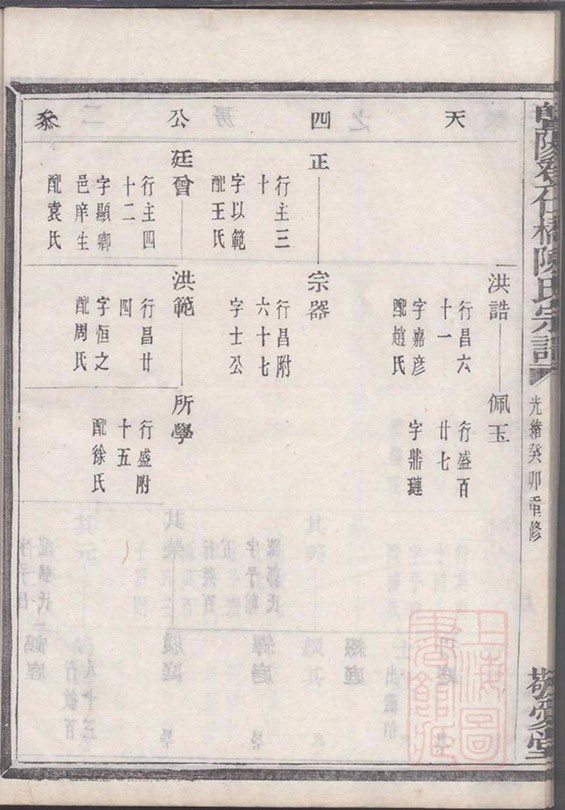 陳氏宗譜
光緒癸卯重修
敬愛堂
天 四 公 叅
洪誥
行昌六
十一
字嘉彦
配趙氏
佩玉
行盛百
廿七
字鼎璉
正
行主三
十
字以範
配王氏
宗器
行昌附
六十七
字士公
廷會
行主四
十二
字顯卿
邑庠生
配袁氏
洪範
行昌廿
四
字恒之
配周氏
所學
行盛附
十五
配徐氏
上海圖
書館藏